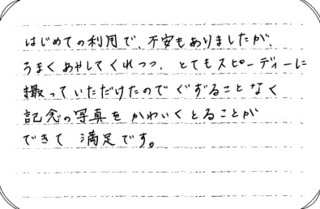 はじめての利用で、不安もありましたが、
うまくあやしてくれつつ、とてもスピーディーに
撮っていただけたのでぐずることなく
記念の写真をかわいくとることが
できて満足です。